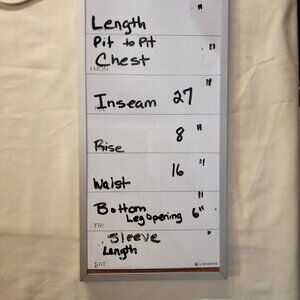 Length "
Pit to Pit
Chest "
MON
Inseam 27 "
TUE
Rise 8 "
Waist 16 "
Bottom "
Leg Opening 6"
FRI
Sleeve "
Length
SAT